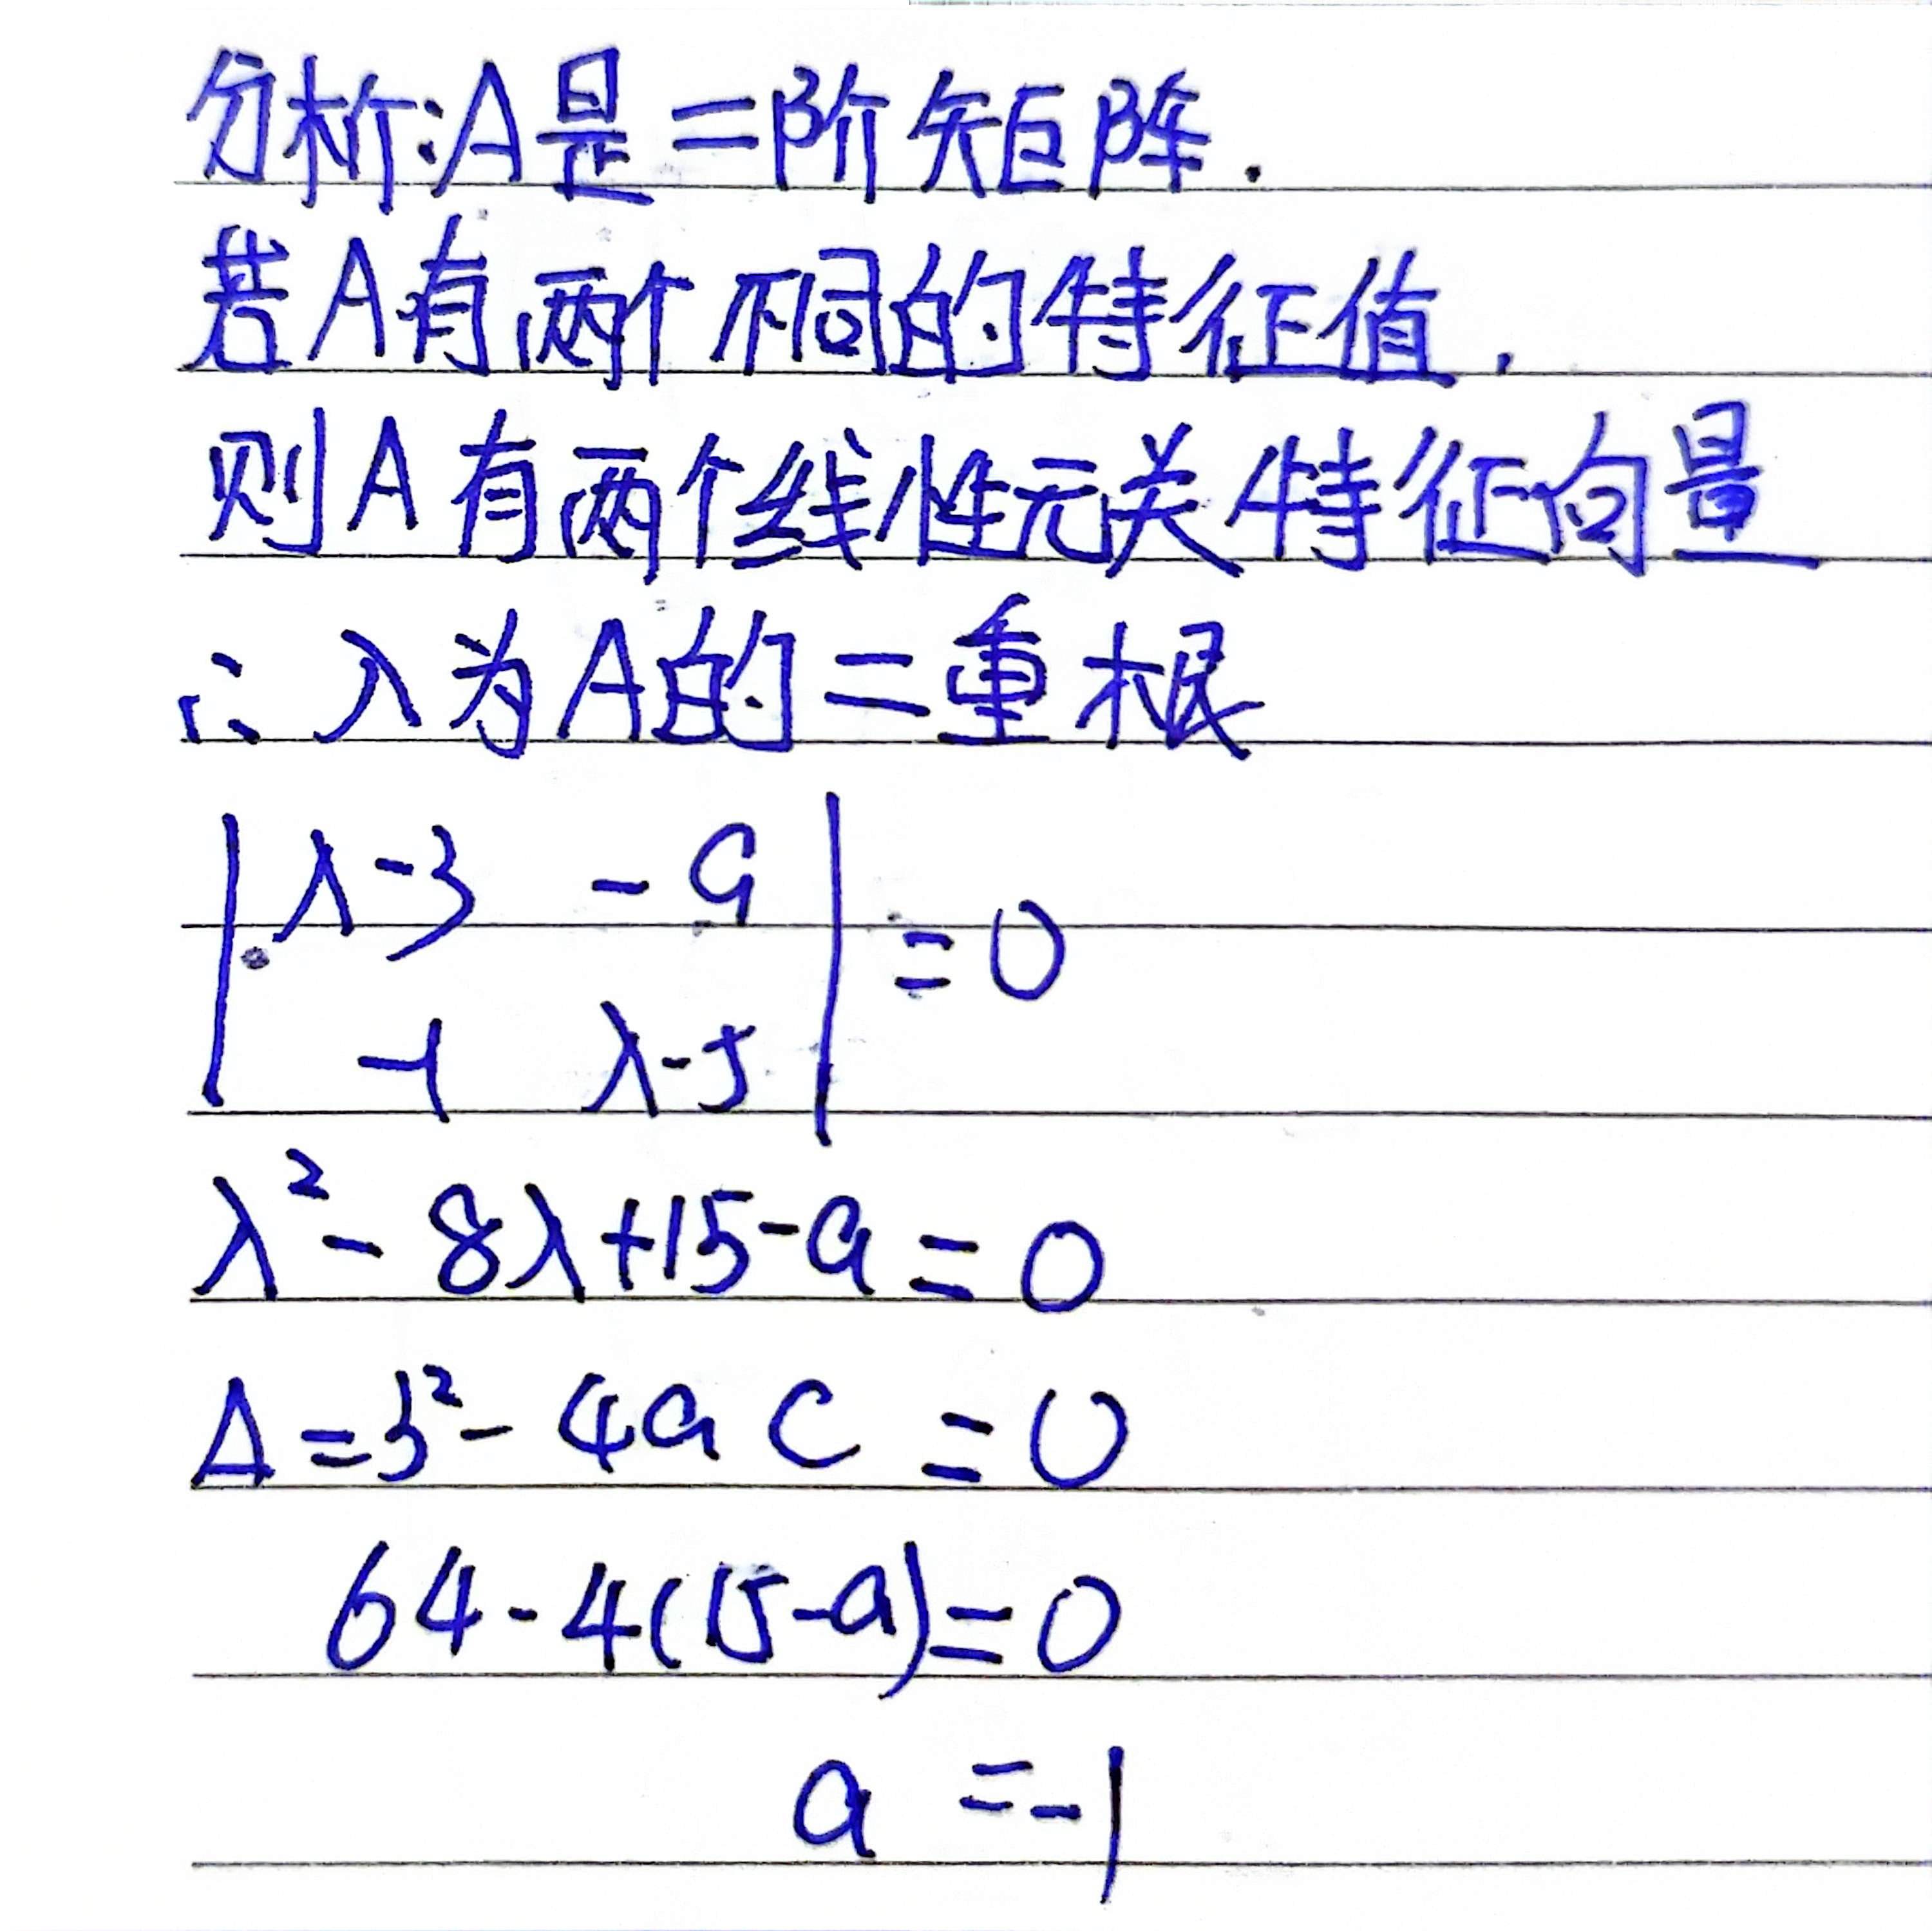 分析:A是二阶矩阵.
若A有两个不同的特征值,
则A有两个线性无关特征向量
∴ λ为A的二重根
| λ-3 -a |
| -1 λ-5 | =0
λ²-8λ+15-a=0
Δ=b²-4ac=0
64-4(15-a)=0
a=-1